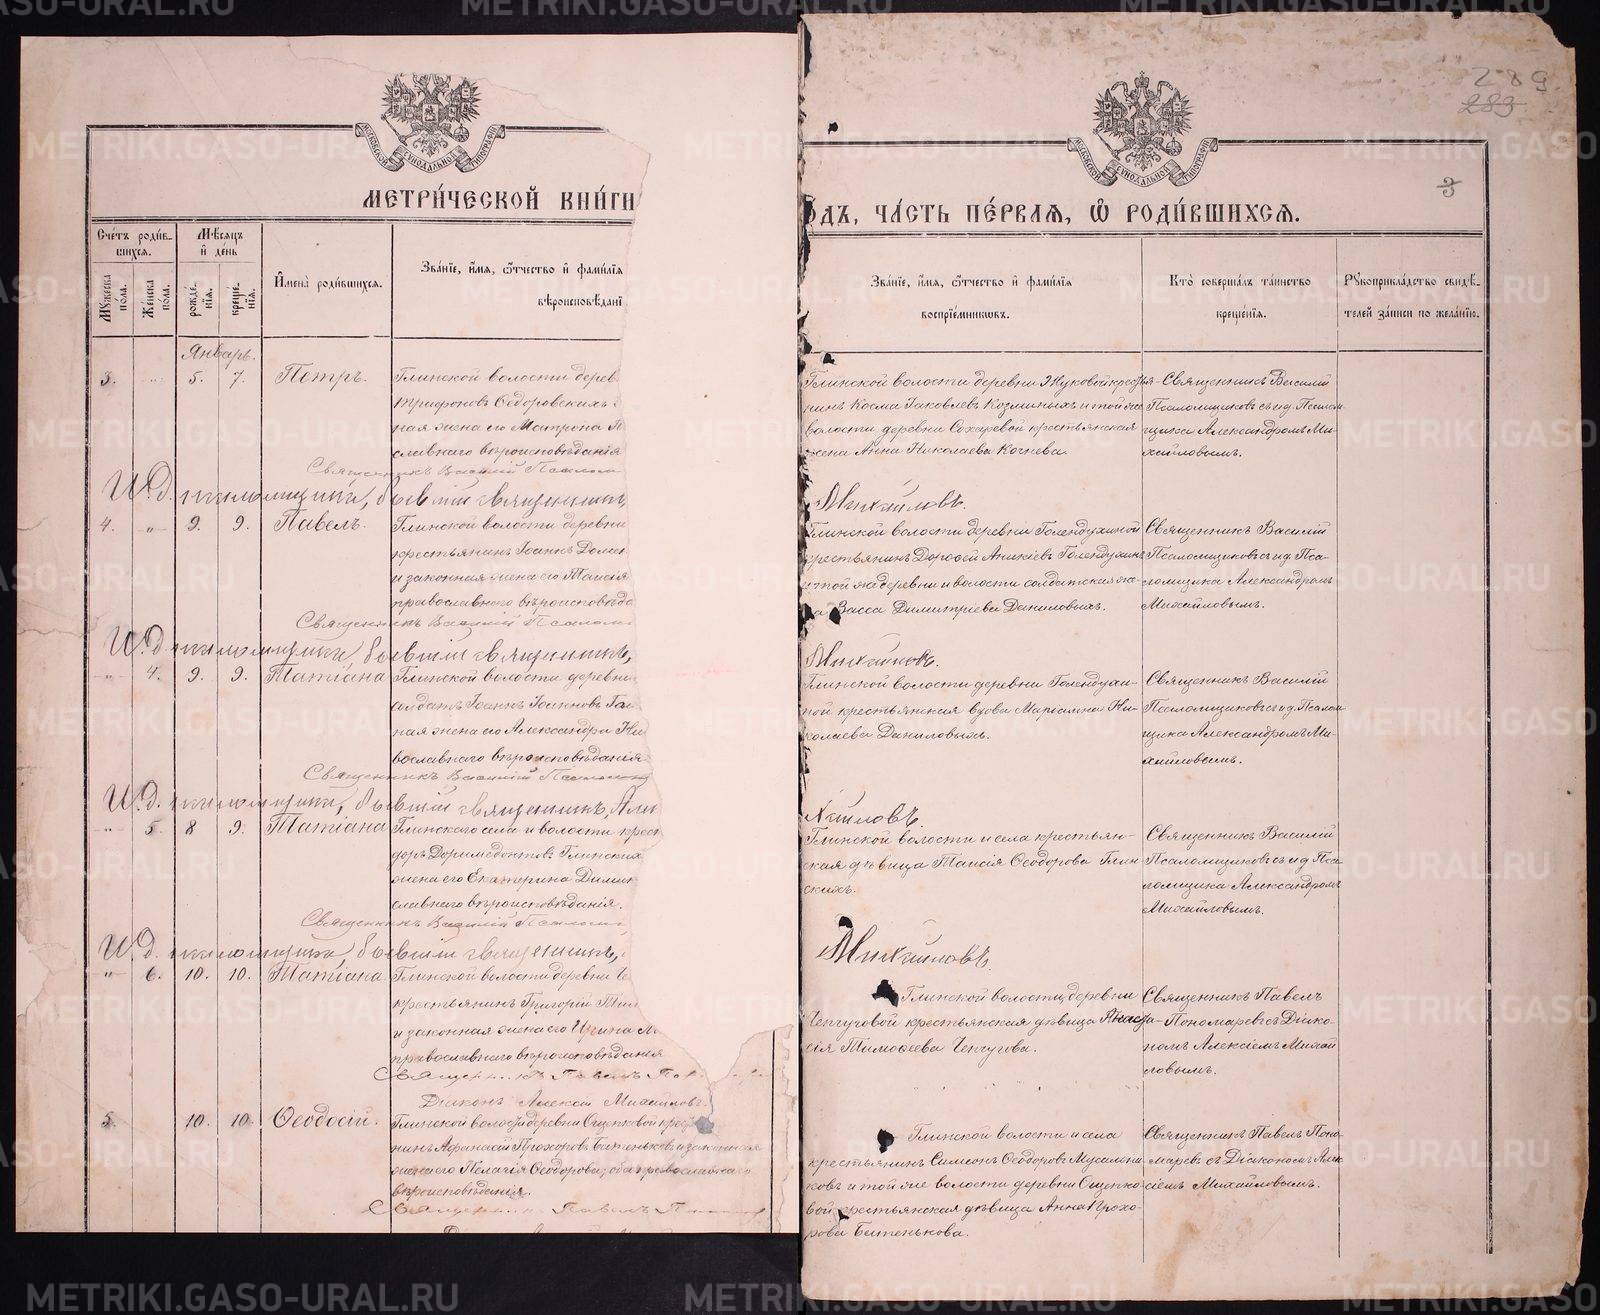 МЕТРИ́ЧЕСКОЙ КНИ́ГИ
Счётъ роди́в-
шихся.
Мѣ́сяцъ
и҆ де́нь
Мꙋ́жеска по́ла.
Же́нска по́ла.
рожде́нїя.
креще́нїя.
И҆мена̀ роди́вшихся.
Зва́нїе, и҆́мя, ѻ҆́тчество и҆ фами́лїя
вѣроисповѣ́данї
Январь.
3. 5. 7. Петръ.
Глинской волости дерев
Трифоновъ Ѳедоровскихъ
ная жена его Матрона П
славнаго вѣроисповѣданія
Священникъ Василій Псалом
И. д. псаломщика, бывшій священникъ,
4. " 9. 9. Павелъ.
Глинской волости деревни
крестьянинъ Іоаннъ Домен
и законная жена его Таисія
православнаго вѣроисповѣда
Священникъ Василій Псалом
И. д. псаломщика, бывшій священникъ,
" 4. 9. 9. Татіана
Глинской волости деревни
солдатъ Іоаннъ Іоанновъ Гол
ная жена его Александра Ни
вославнаго вѣроисповѣданія
Священникъ Василій Псаломщ
И. д. псаломщика, бывшій священникъ, Алек
" 5. 8 9. Татіана
Глинскаго села и волости крест
доръ Доримедонтовъ Глинскихъ
жена его Екатерина Димит
славнаго вѣроисповѣданія.
Священникъ Василій Псаломщ
И. д. псаломщика, бывшій священникъ,
" 6. 10. 10. Татіана
Глинской волости деревни Че
крестьянинъ Григорій Тим
и законная жена его Ирина
православнаго вѣроисповѣданія
Священникъ Павелъ По
Діаконъ Алексій Михайловъ.
5. 10. 10. Ѳеодосій.
Глинской волости деревни Ощепковой крестья
нинъ Афанасій Прохоровъ Батеньковъ и законная
жена его Пелагія Ѳеодорова, оба православнаго
вѣроисповѣданія.
Священникъ Павелъ П
289
283
3
ѻдъ, ча́сть пе́рвая, ѡ҆ роди́вшихся.
Зва́нїе, и҆́мя, ѻ҆́тчество и҆ фами́лїя
воспрїе́мникѡвъ.
Кто̀ соверша́лъ та́инство
креще́нїя.
Рꙋкоприкла́дство свидѣ́-
телей за́писи по жела́нїю.
Глинской волости деревни Жуковой крестья-
нинъ Косма Іаковлевъ Козминыхъ и той же
волости деревни Сохаревой крестьянская
жена Анна Николаева Кочнева.
Священникъ Василій
Псаломщиковъ съ и д Псалом
щика Александромъ Ми-
хайловымъ.
Михайловъ.
Глинской волости деревни Голендухиной
крестьянинъ Дороѳей Аникіевъ Голендухинъ
и той же деревни и волости солдатская же-
на Васса Димитріева Даниловыхъ.
Священникъ Василій
Псаломщиковъ съ и д Пса-
ломщика Александромъ
Михайловымъ.
Михайловъ.
Глинской волости деревни Голендухи-
ной крестьянская вдова Маріамна Ни-
колаева Даниловыхъ.
Священникъ Василій
Псаломщиковъ съ и д Псалом
щика Александромъ Ми-
хайловымъ.
хайловъ
Глинской волости и села крестьян-
ская дѣвица Таисія Ѳеодорова Глин-
скихъ.
Священникъ Василій
Псаломщиковъ съ и д Пса
ломщика Александромъ
Михайловымъ.
Михайловъ.
Глинской волости, деревни
Ченчуговой крестьянская дѣвица Анаста-
сія Тимоѳеева Ченчугова.
Священникъ Павелъ
Пономаревъ съ Діако-
номъ Алексіемъ Михай
ловымъ.
Глинской волости и села
крестьянинъ Симеонъ Ѳеодоровъ Мусальни-
ковъ и той же волости деревни Ощепко-
вой крестьянская дѣвица Анна Прохо-
рова Батенькова.
Священникъ Павелъ Поно-
маревъ съ Діакономъ Алек
сіемъ Михайловымъ.
METRIKI.GASO-URAL.RU